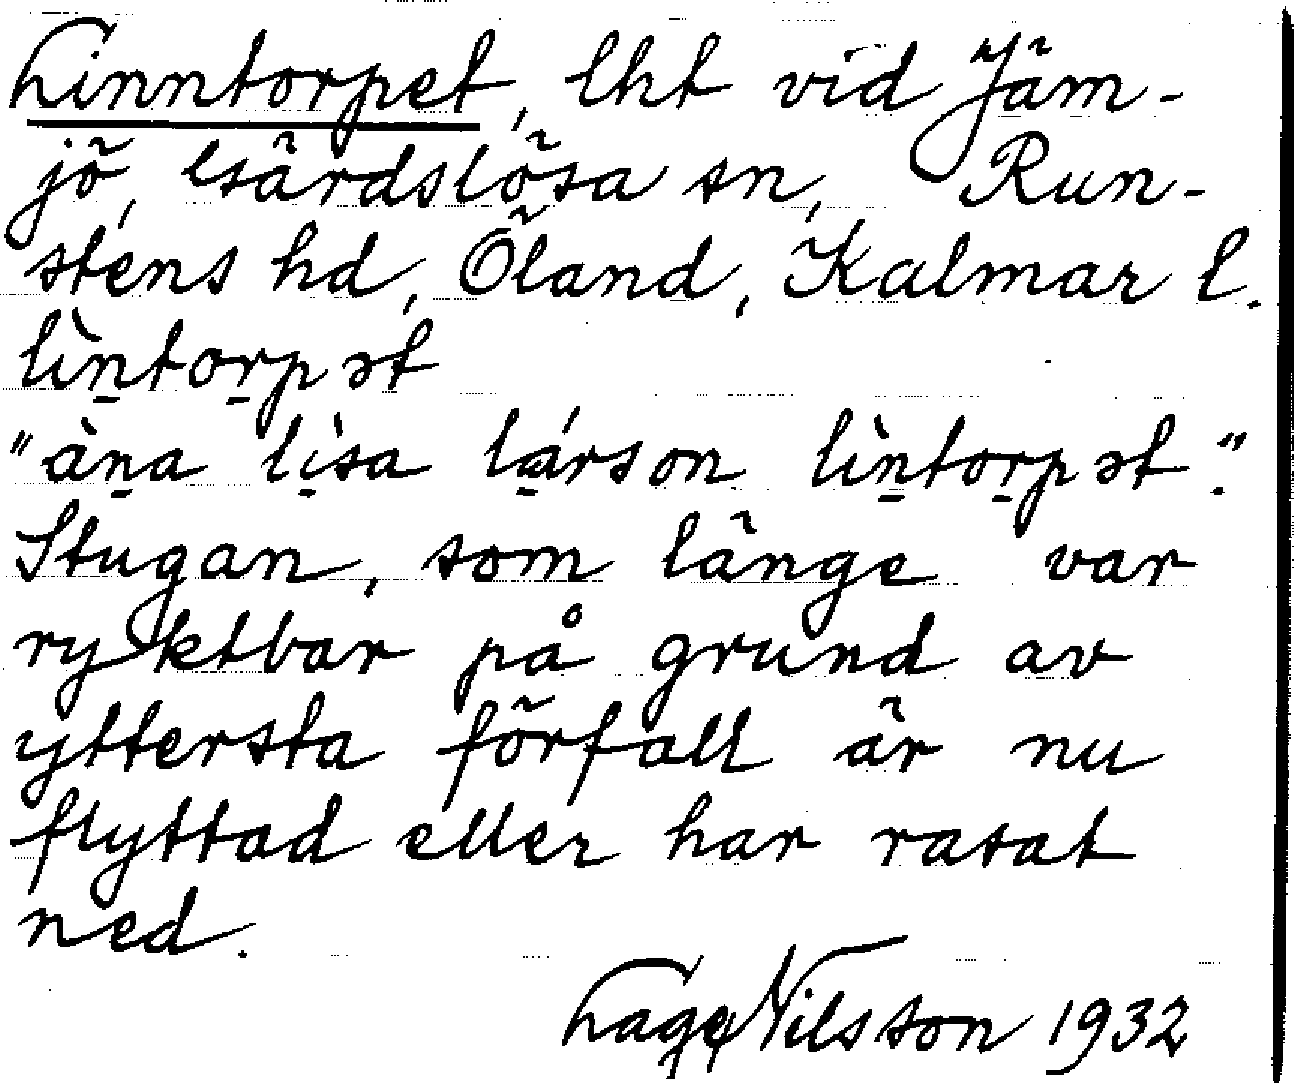 Linntorpet, lht vid Jäm-
jö, Gärdslösa sn, Run-
stens hd, Öland, Kalmar l.
lìntorpət
"àna lìsa lárson lìntorpət".
Stugan, som länge var
ryktbar på grund av
yttersta förfall är nu
flyttad eller har rasat
ned.
Lage Nilsson 1932